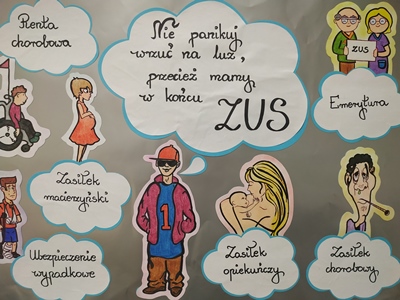 Renta
chorobowa
Nie panikuj,
wrzuć na luz,
przecież mamy
w końcu
ZUS
ZUS
Emerytura
Zasiłek
macierzyński
1
Ubezpieczenie
wypadkowe
Zasiłek
opiekuńczy
Zasiłek
chorobowy